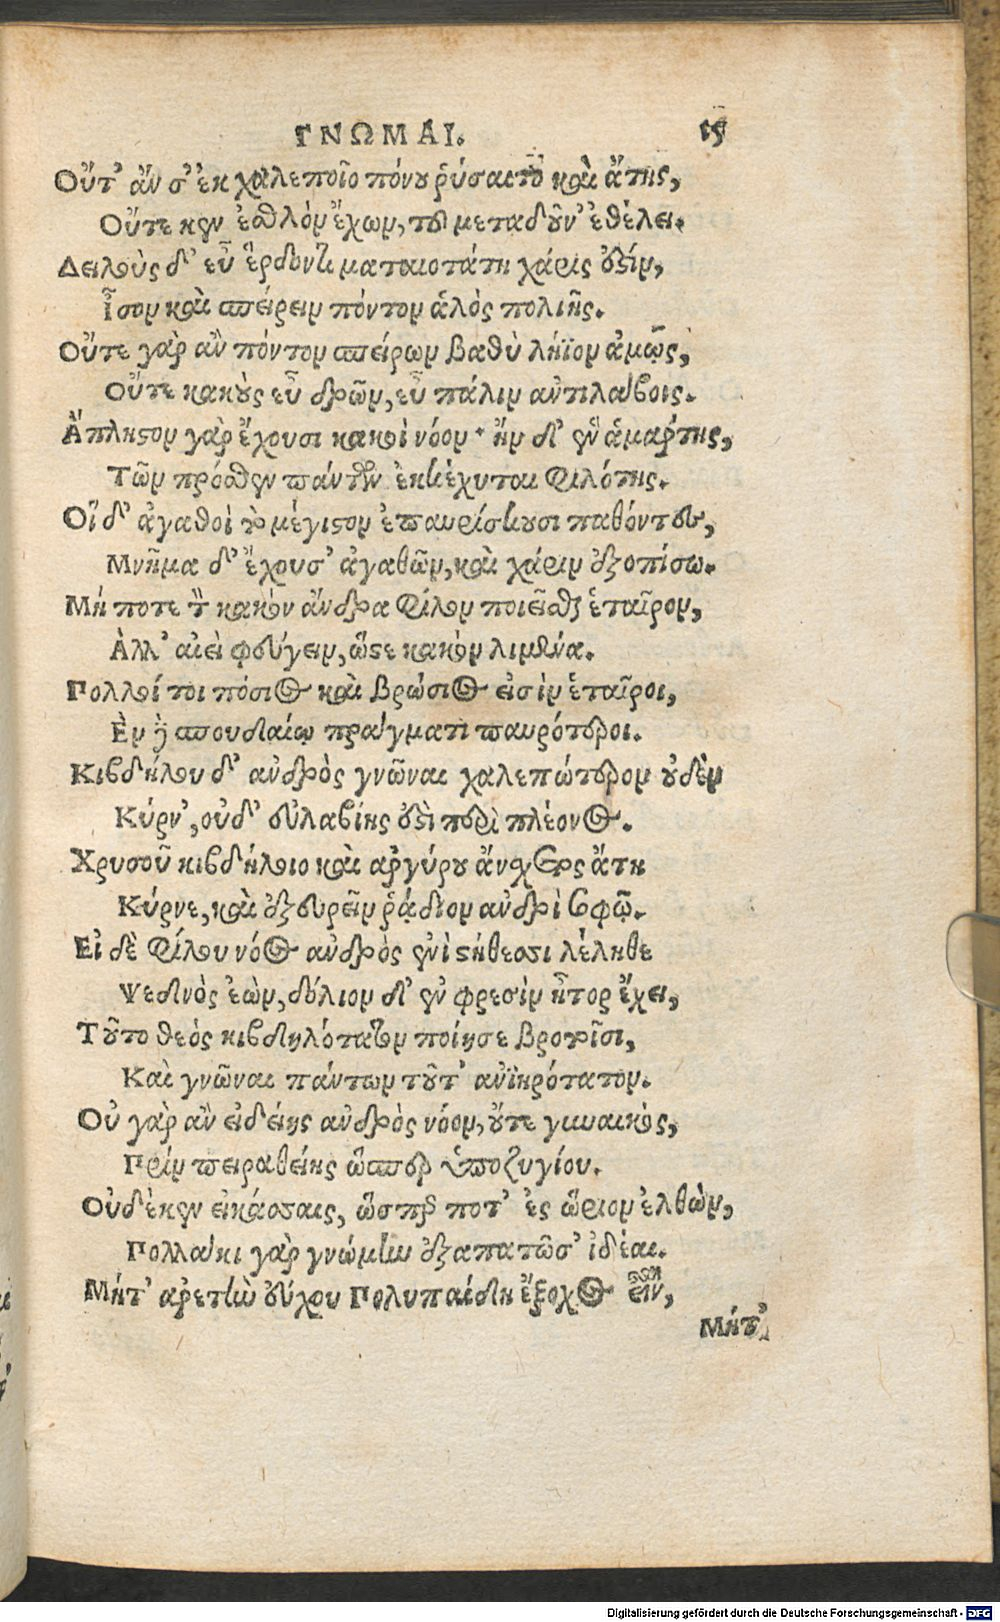 ΓΝΩΜΑΙ. 15
Οὔτ' ἄν σ' ἐκ χαλεποῖο πόνου ῥύσαιτο καὶ ἄτης,
Οὔτε κεν ἐσθλὸν ἔχων, τοῦ μεταδοῦν' ἐθέλει.
Δειλοὺς δ' εὖ ἔρδοντι ματαιοτάτη χάρις ἐστίν,
Ἶσον καὶ σπείρειν πόντον ἁλὸς πολιῆς.
Οὔτε γὰρ ἂν πόντον σπείρων βαθὺ λήϊον ἀμῷς,
Οὔτε κακοὺς εὖ δρῶν, εὖ πάλιν ἀντιλάβοις.
Ἄπληστον γὰρ ἔχουσι κακοὶ νόον· ἢν δ' ἓν ἁμάρτης,
Τῶν πρόσθεν πάντων ἐκκέχυται φιλότης.
Οἵ δ' ἀγαθοὶ τὸ μέγιστον ἐπαυρίσκουσι παθόντες,
Μνῆμα δ' ἔχουσ' ἀγαθῶν, καὶ χάριν ἐξοπίσω.
Μή ποτε τὸν κακὸν ἄνδρα φίλον ποιεῖσθαι ἑταῖρον,
Ἀλλ' αἰεὶ φεύγειν, ὥστε κακὸν λιμένα.
Πολλοί τοι πόσιος καὶ βρώσιος εἰσὶν ἑταῖροι,
Ἐν δὲ σπουδαίῳ πράγματι παυρότεροι.
Κιβδήλου δ' ἀνδρὸς γνῶναι χαλεπώτερον οὐδὲν
Κύρν', οὐδ' εὐλαβίης ἐστὶ περὶ πλέονος.
Χρυσοῦ κιβδήλοιο καὶ ἀργύρου ἄνσχετος ἄτη
Κύρνε, καὶ ἐξευρεῖν ῥᾴδιον ἀνδρὶ σοφῷ.
Εἰ δὲ φίλου νόος ἀνδρὸς ἐνὶ στήθεσσι λέληθε
Ψεδινὸς ἐὼν, δόλιον δ' ἐν φρεσὶν ἦτορ ἔχει,
Τοῦτο θεὸς κιβδηλότατον ποίησε βροτοῖσι,
Καὶ γνῶναι πάντων τοῦτ' ἀνιηρότατον.
Οὐ γὰρ ἂν εἰδείης ἀνδρὸς νόον, οὔτε γυναικὸς,
Πρὶν πειραθείης ὥσπερ ὑποζυγίου.
Οὐδέ κεν εἰκάσσαις, ὥσπερ ποτ' ἐς ὥριον ἐλθὼν,
Πολλάκι γὰρ γνώμην ἐξαπατῶσ' ἰδέαι.
Μήτ' ἀρετὴν εὔχου Πολυπαίδη ἔξοχος εἶναι,
Μήτ'
Digitalisierung gefördert durch die Deutsche Forschungsgemeinschaft - DFG